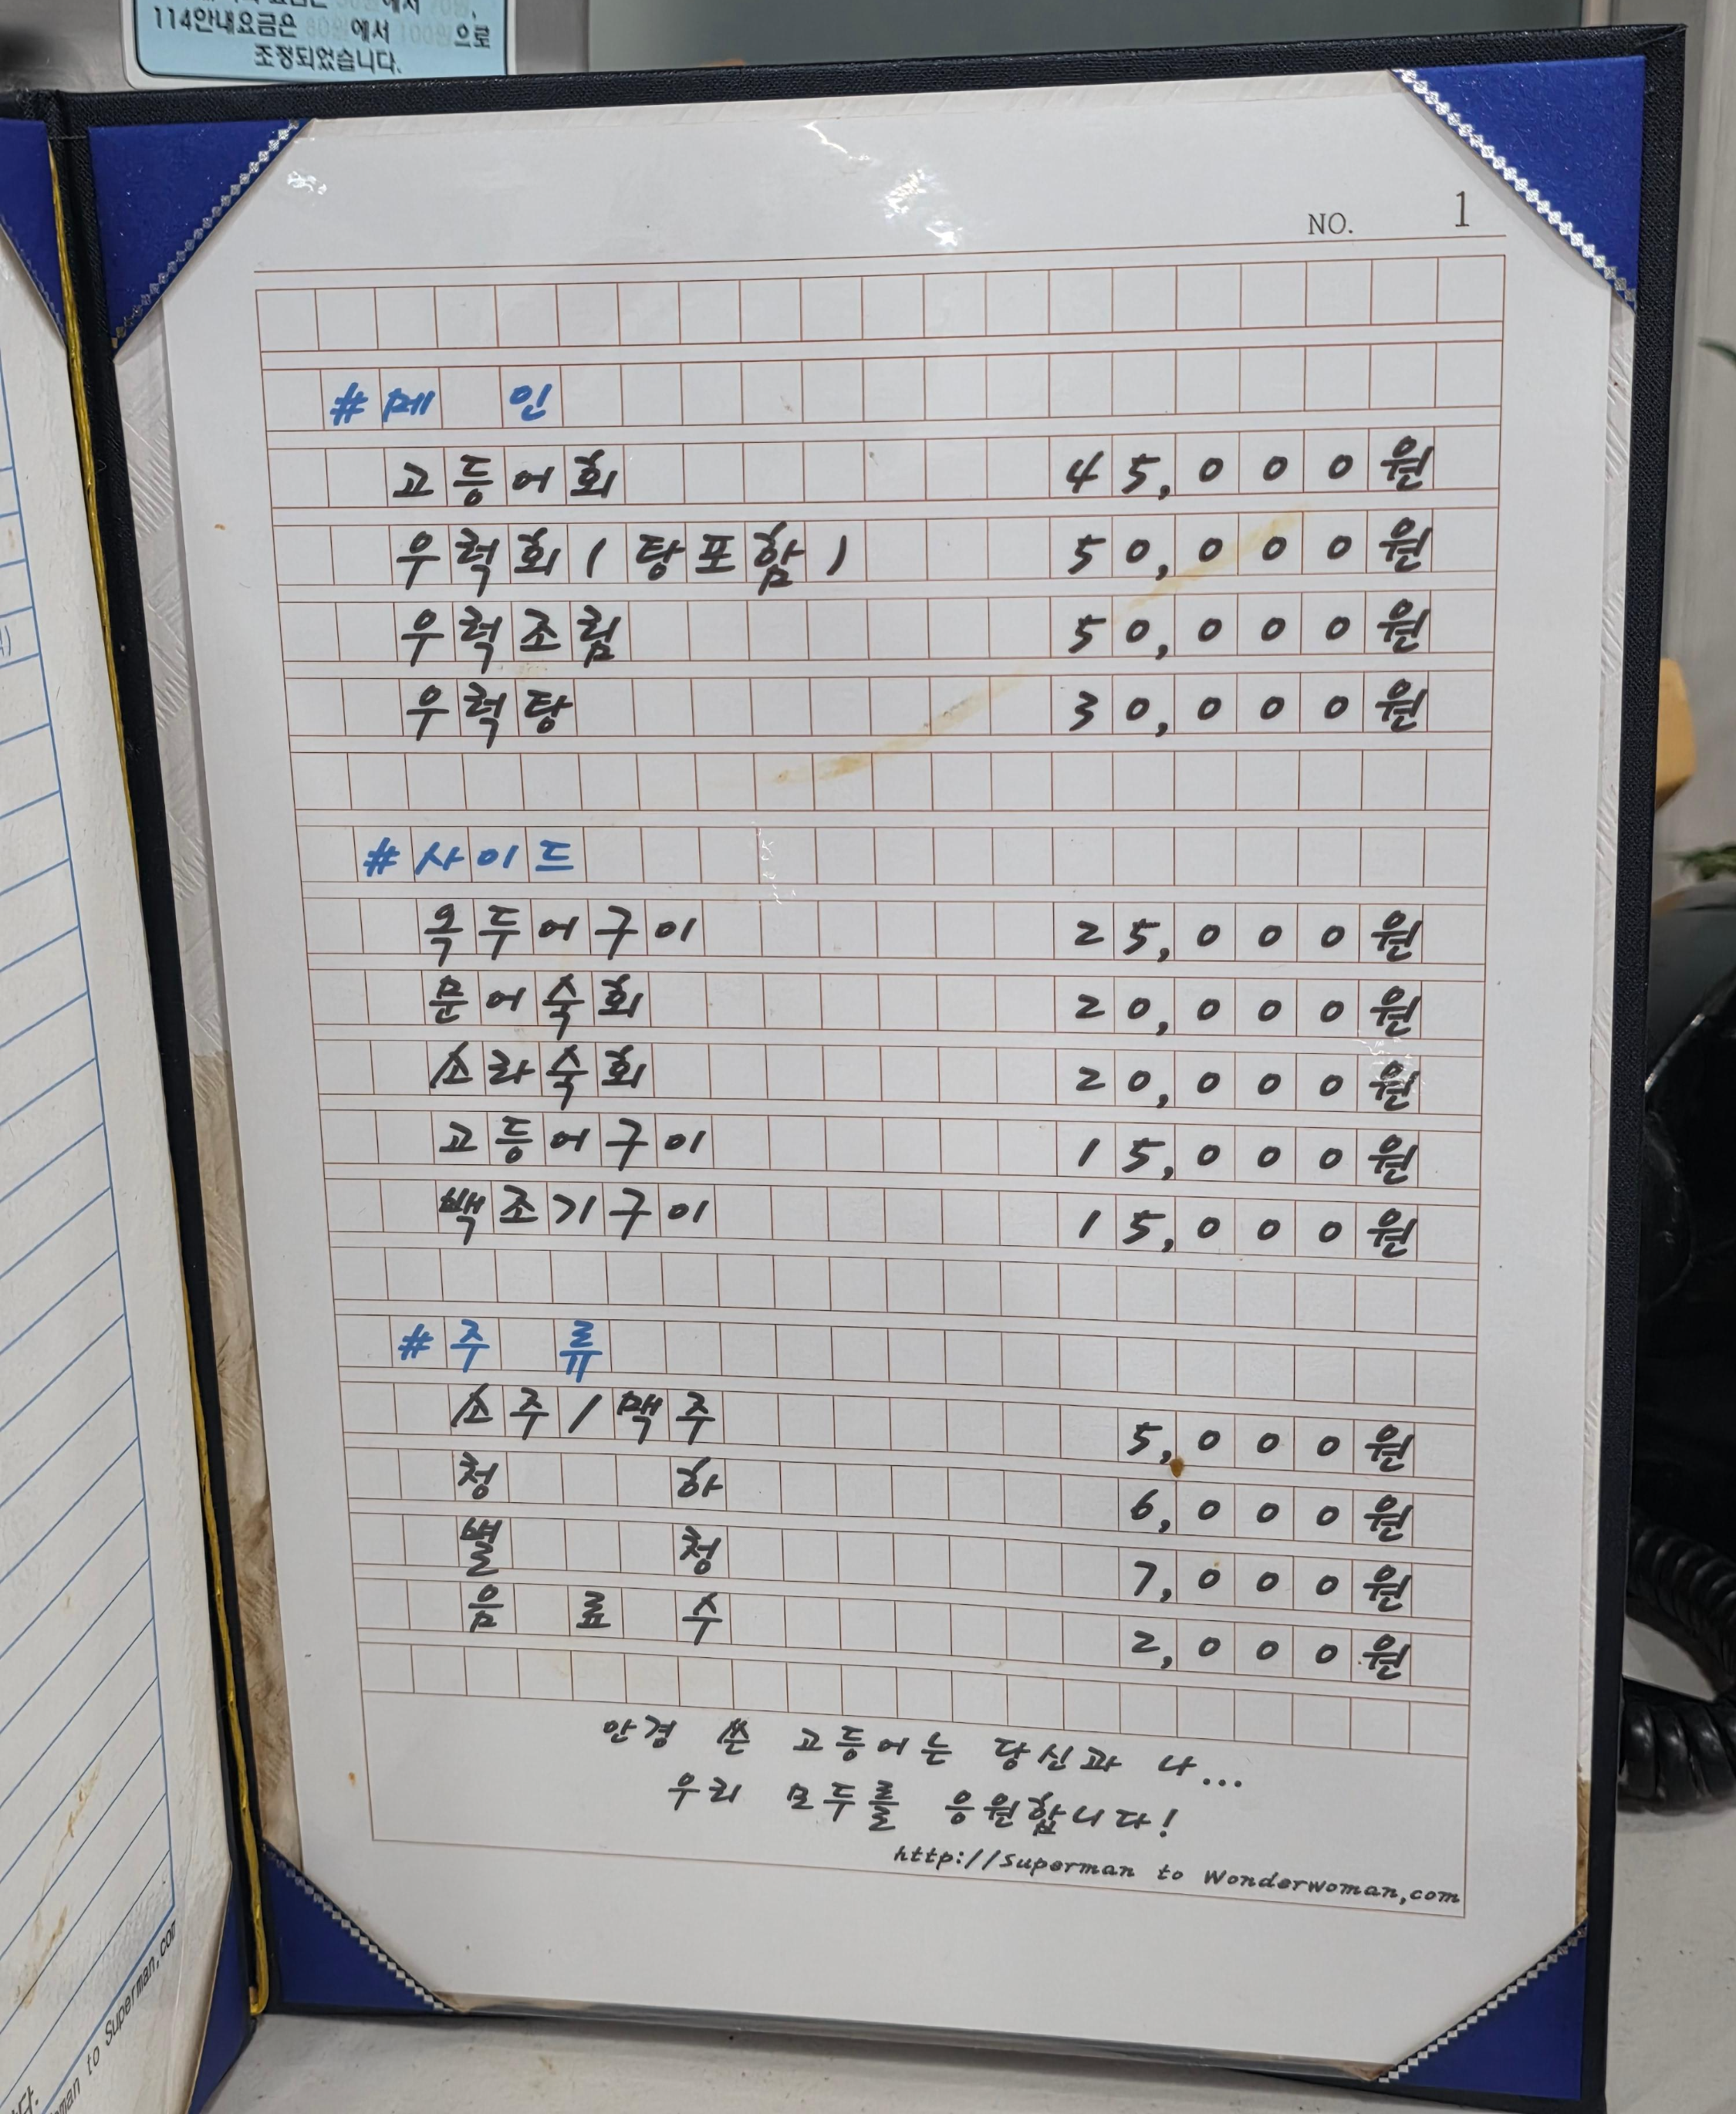 114안내요금은 80원에서 100원으로
조정되었습니다.
NO. 1
#메 인
고등어회 45,000원
우럭회(탕포함) 50,000원
우럭조림 50,000원
우럭탕 30,000원
#사이드
옥두어구이 25,000원
문어숙회 20,000원
소라숙회 20,000원
고등어구이 15,000원
백조기구이 15,000원
#주 류
소주/맥주 5,000원
청 하 6,000원
별 청 7,000원
음 료 수 2,000원
안경 쓴 고등어는 당신과 나...
우리 모두를 응원합니다!
http://Superman to Wonderwoman,com
to Superman.com